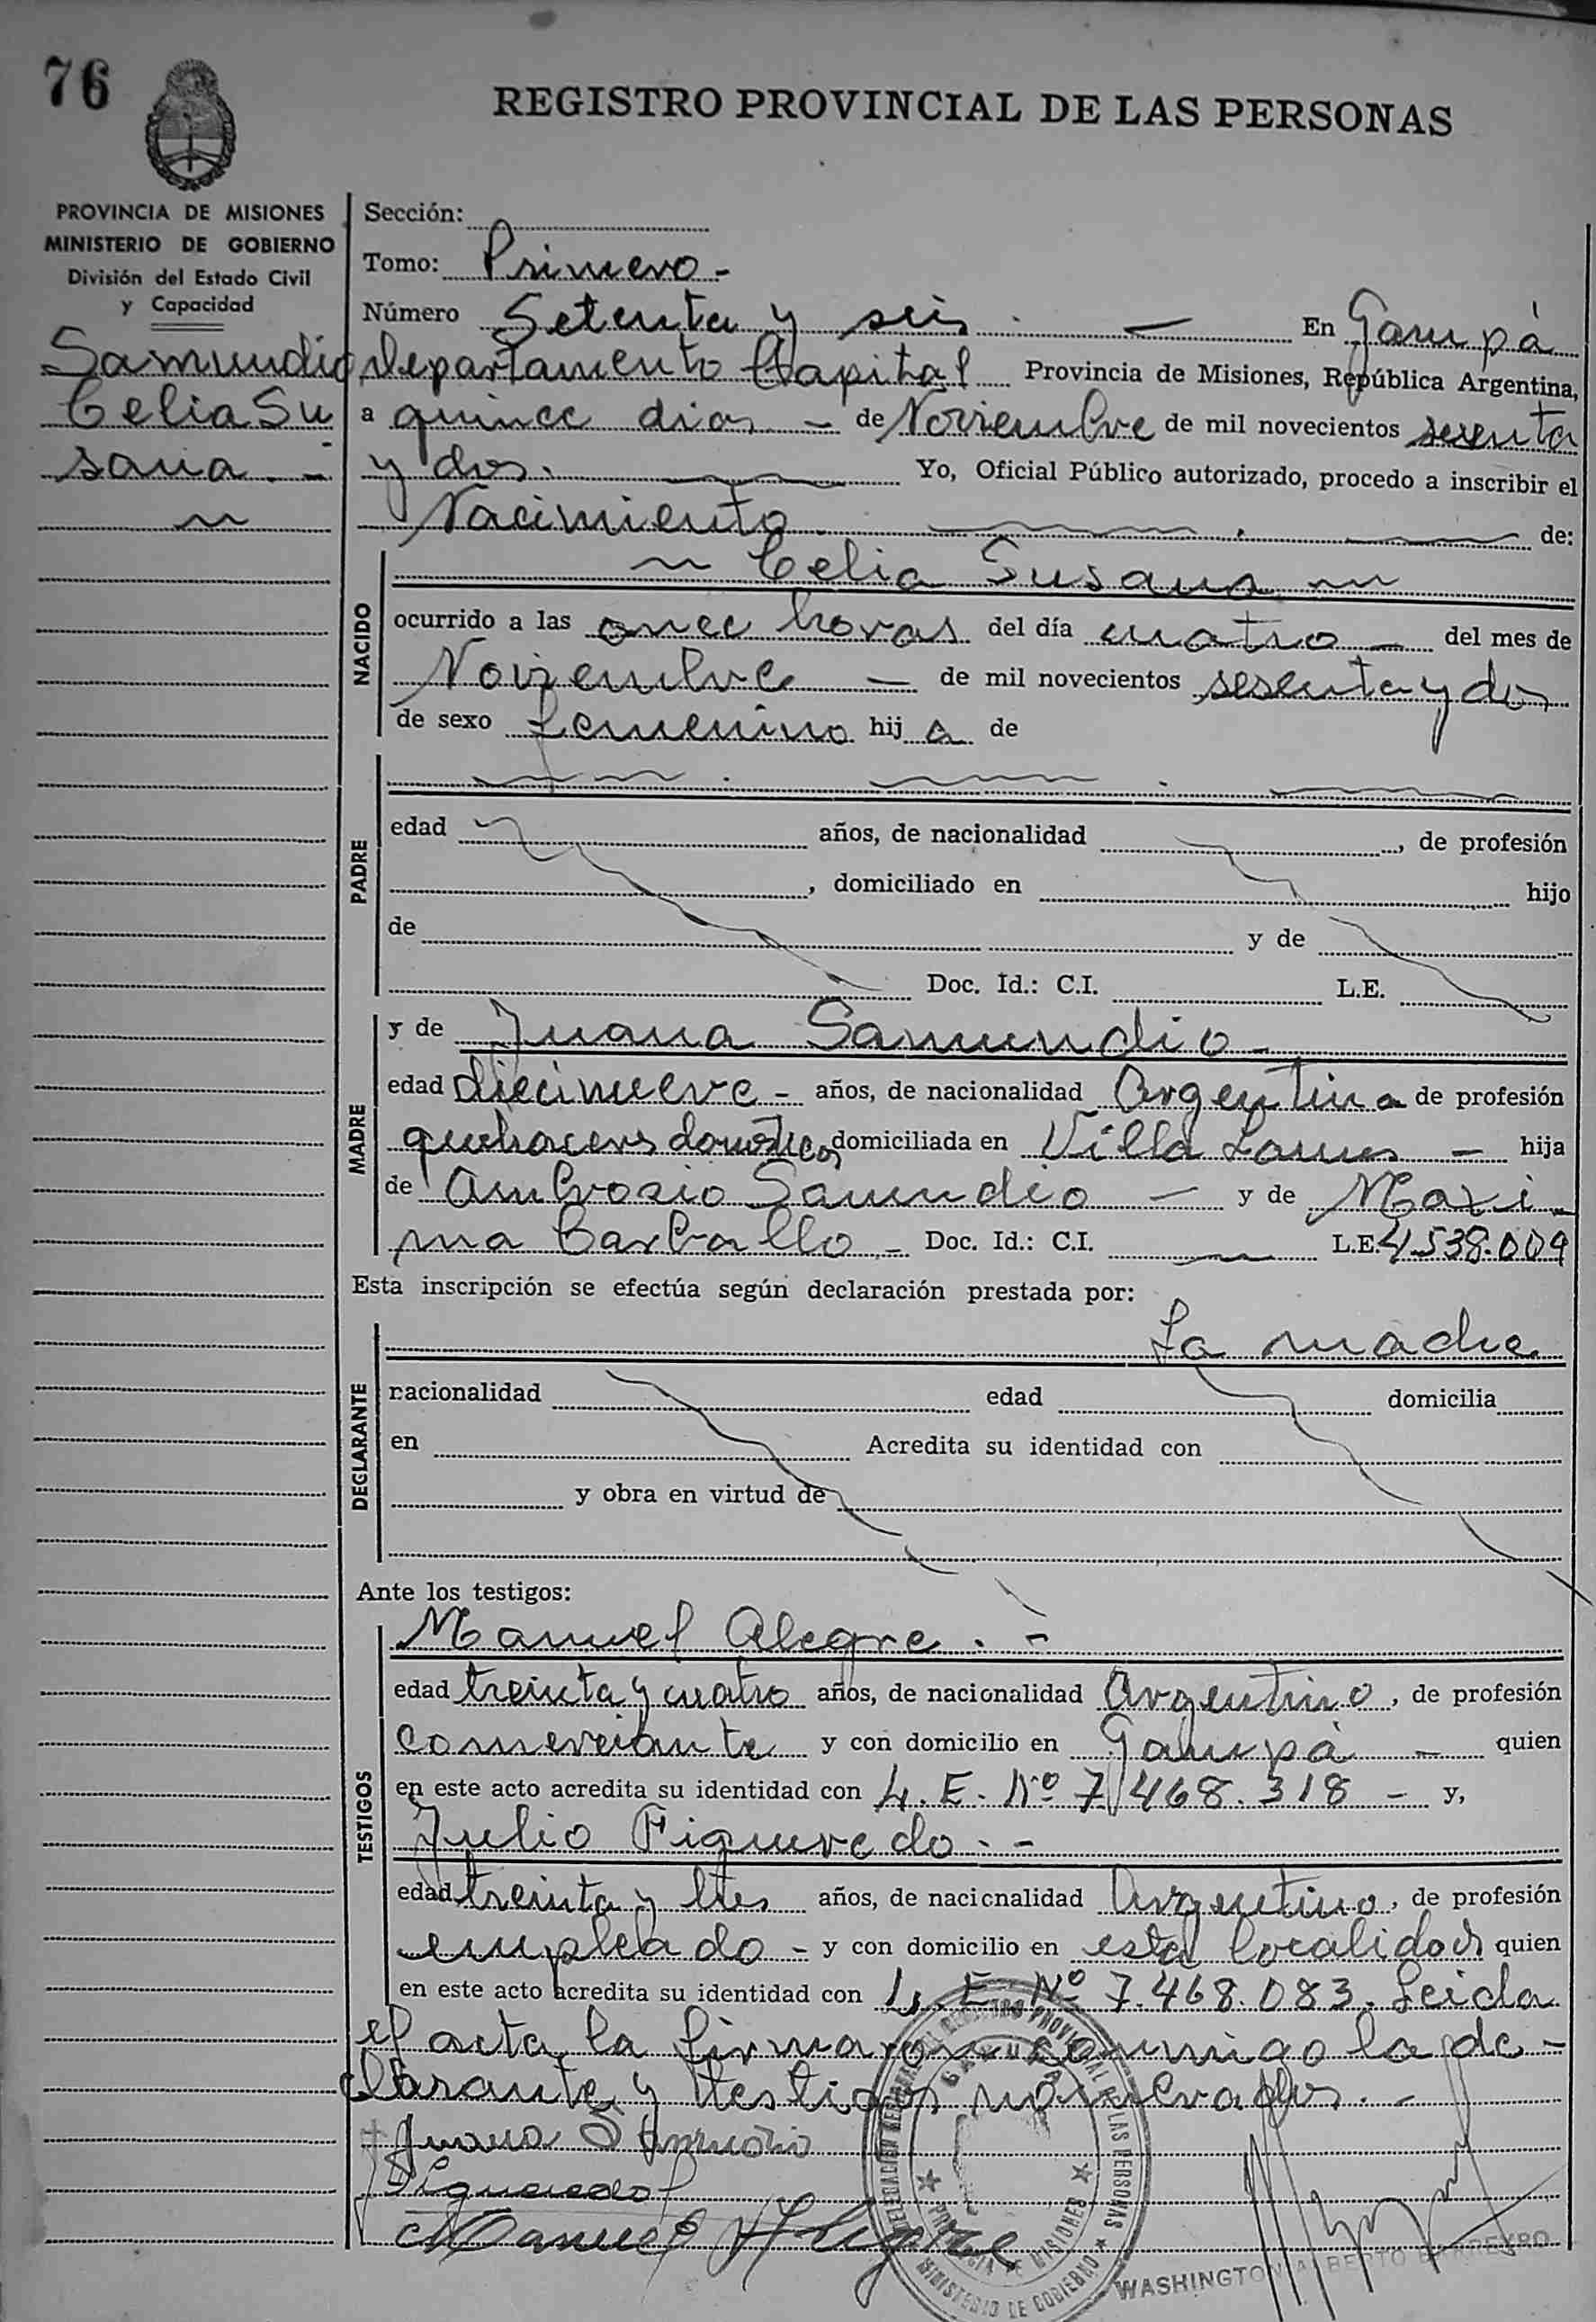 76
REGISTRO PROVINCIAL DE LAS PERSONAS
PROVINCIA DE MISIONES
MINISTERIO DE GOBIERNO
División del Estado Civil
y Capacidad
Samundio
Celia Su
sana . -
Sección:
Tomo: Primero -
Número Setenta y seis . — En Garupá
departamento Capital Provincia de Misiones, República Argentina,
a quince dias - de Noviembre de mil novecientos sesenta
y dos. Yo, Oficial Público autorizado, procedo a inscribir el
Nacimiento de:
NACIDO
Celia Susana
ocurrido a las once horas del día cuatro — del mes de
Noviembre — de mil novecientos sesenta y dos
de sexo femenino hij a de
PADRE
edad años, de nacionalidad , de profesión
, domiciliado en hijo
de y de
Doc. Id.: C.I. L.E.
MADRE
y de Juana Samundio -
edad diecinueve - años, de nacionalidad Argentina de profesión
quehaceres domésticos domiciliada en Villa Lanus — hija
de Ambrosio Samundio — y de Maxi
ma Carballo - Doc. Id.: C.I. — L.E. 4.538.009
Esta inscripción se efectúa según declaración prestada por:
La madre
DECLARANTE
nacionalidad edad domicilia
en Acredita su identidad con
y obra en virtud de
Ante los testigos:
TESTIGOS
Manuel Alegre . -
edad treinta y cuatro años, de nacionalidad Argentino , de profesión
comerciante y con domicilio en Garupá — quien
en este acto acredita su identidad con L. E. Nº 7.468.318 - y,
Julio Figueredo . -
edad treinta y tres años, de nacionalidad Argentino , de profesión
empleado - y con domicilio en esta localidad quien
en este acto acredita su identidad con L. E. Nº 7.468.083. Leida
el acta la firmaron conmigo la de -
clarante y testigos . -
Juana Samudio
Figueredo
Manuel Alegre
DELEGACION DEL REGISTRO PROVINCIAL DE LAS PERSONAS
GARUPA
PROVINCIA DE MISIONES
MINISTERIO DE GOBIERNO
WASHINGTON ALBERTO BARREYRO